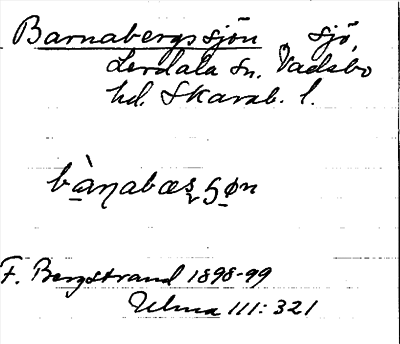 Barnabergssjön, sjö,
Lerdala sn. Vadsbo
hd. Skarab. l.
bàn̠abæs̠ʂøn
F. Bergstrand 1898-99
Ulma 111:321